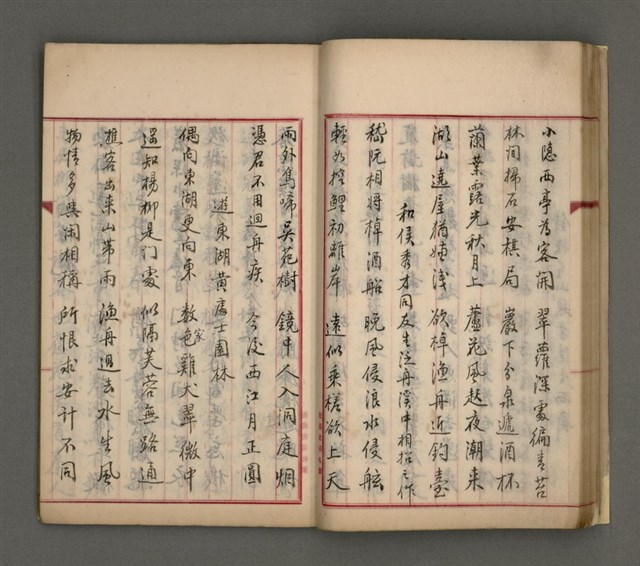 小隱西亭為客開　翠蘿深處徧青苔
林间掃石安棋局　巖下分泉遞酒杯
蘭葉露光秋月上　蘆花風起夜潮来
湖山遶屋猶嫌淺　欲棹漁舟近釣臺
和侯秀才同友生泛舟溪中相招之作
嵇阮相将棹酒船　晚風侵浪水侵舷
輕如控鯉初離岸　遠似乘槎欲上天
雨外鶯啼吳苑樹　鏡中人入洞庭烟
憑君不用迴舟疾　今夜西江月正圓
遊東湖黃處士園林
偶向東湖更向東　数家色雞犬翠微中
遥知楊柳是门處　似隔芙蓉無路通
樵客出来山帯雨　漁舟過去水生風
物情多與闲相稱　所恨求安計不同